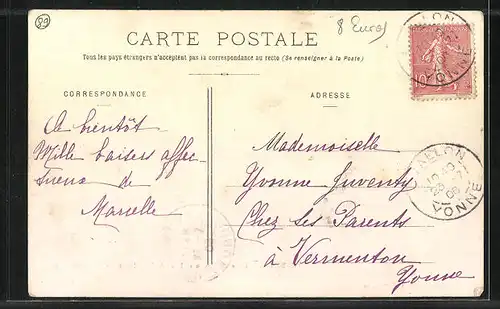 89
8 Euros
CARTE POSTALE
Tous les pays étrangers n'acceptent pas la correspondance au recto (Se renseigner à la Poste)
CORRESPONDANCE
ADRESSE
A bientôt
Mille baisers affec-
tueux de
Marcelle
Mademoiselle
Yvonne Juventy
Chez ses Parents
à Vermenton
Yonne
AVALLON
YONNE